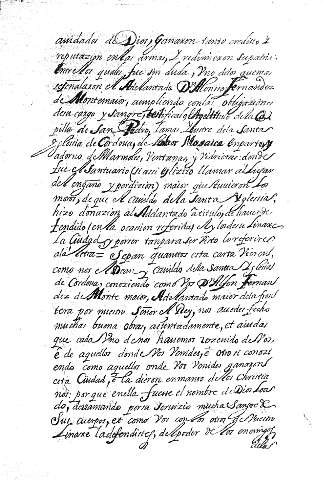 auidados de Dios, y Ganaron tanto credito, i
reputazion en las armas,
entre los quales fue sin duda, Vno de los que mas
se señalaron el Adelantado D. Alonso Fernandez
de Montemaior, cumpliendo con las obligaziones
de su cargo y sangre, de la Ca
pilla de San Pedro, lo mas Ilustre de la Santa
Yglesia de Cordoua, de Lauor Mosaica en parte, y
adorno de Marmoles, Ventanas, y Vidrieras donde
fue el Santuario (si assi es lizito llamar al Lugar
del engaño y perdizion) maior que tuuieron los
moros, de que el Cauildo de la Santa Yglesia,
hizo donazion al Adelantado a titulo de hauer de
fendido (en la ocasion referida) su Ilustre Linaxe
la Ciudad, y poner tan para ser Visto lo referire
a la letra = Sepan quantos esta carta Vieren,
como nos el Dean y Cauildo de la Santa Yglesia
de Cordoua, conoziendo como Vos D. Alfon Fernan
dez de Monte maior, Adelantado maior de la fron
tera por nuestro Señor el Rey, nos auedes fecho
muchas buenas obras, asi entadamente, et aiudas
que cada Vno de nos hauemos rezeuido de Vos,
e de aquellos donde Vos Venides, e otro si conozi
endo como aquellos onde Vos Venides ganaron
esta Ciudad, e la dieron en manos de los Christia
nos, por que en ella fuese el nombre de Dios Loa
do, derramando por su seruizio mucha Sangre de
Sus cuerpos, et como Vos con los otros de Vuestro
Linaxe la defendistes, de poder de los enemigos